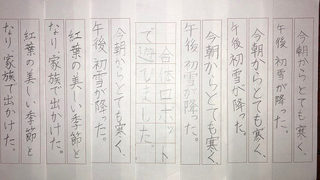 今朝からとても寒く、
午後、初雪が降った。
今朝からとても寒く、
午後、初雪が降った。
今朝からとても寒く、
午後、初雪が降った。
合体ロボット
で遊びました。
今朝からとても寒く、
午後、初雪が降った。
紅葉の美しい季節と
なり、家族で出かけた。
紅葉の美しい季節と
なり、家族で出かけた。